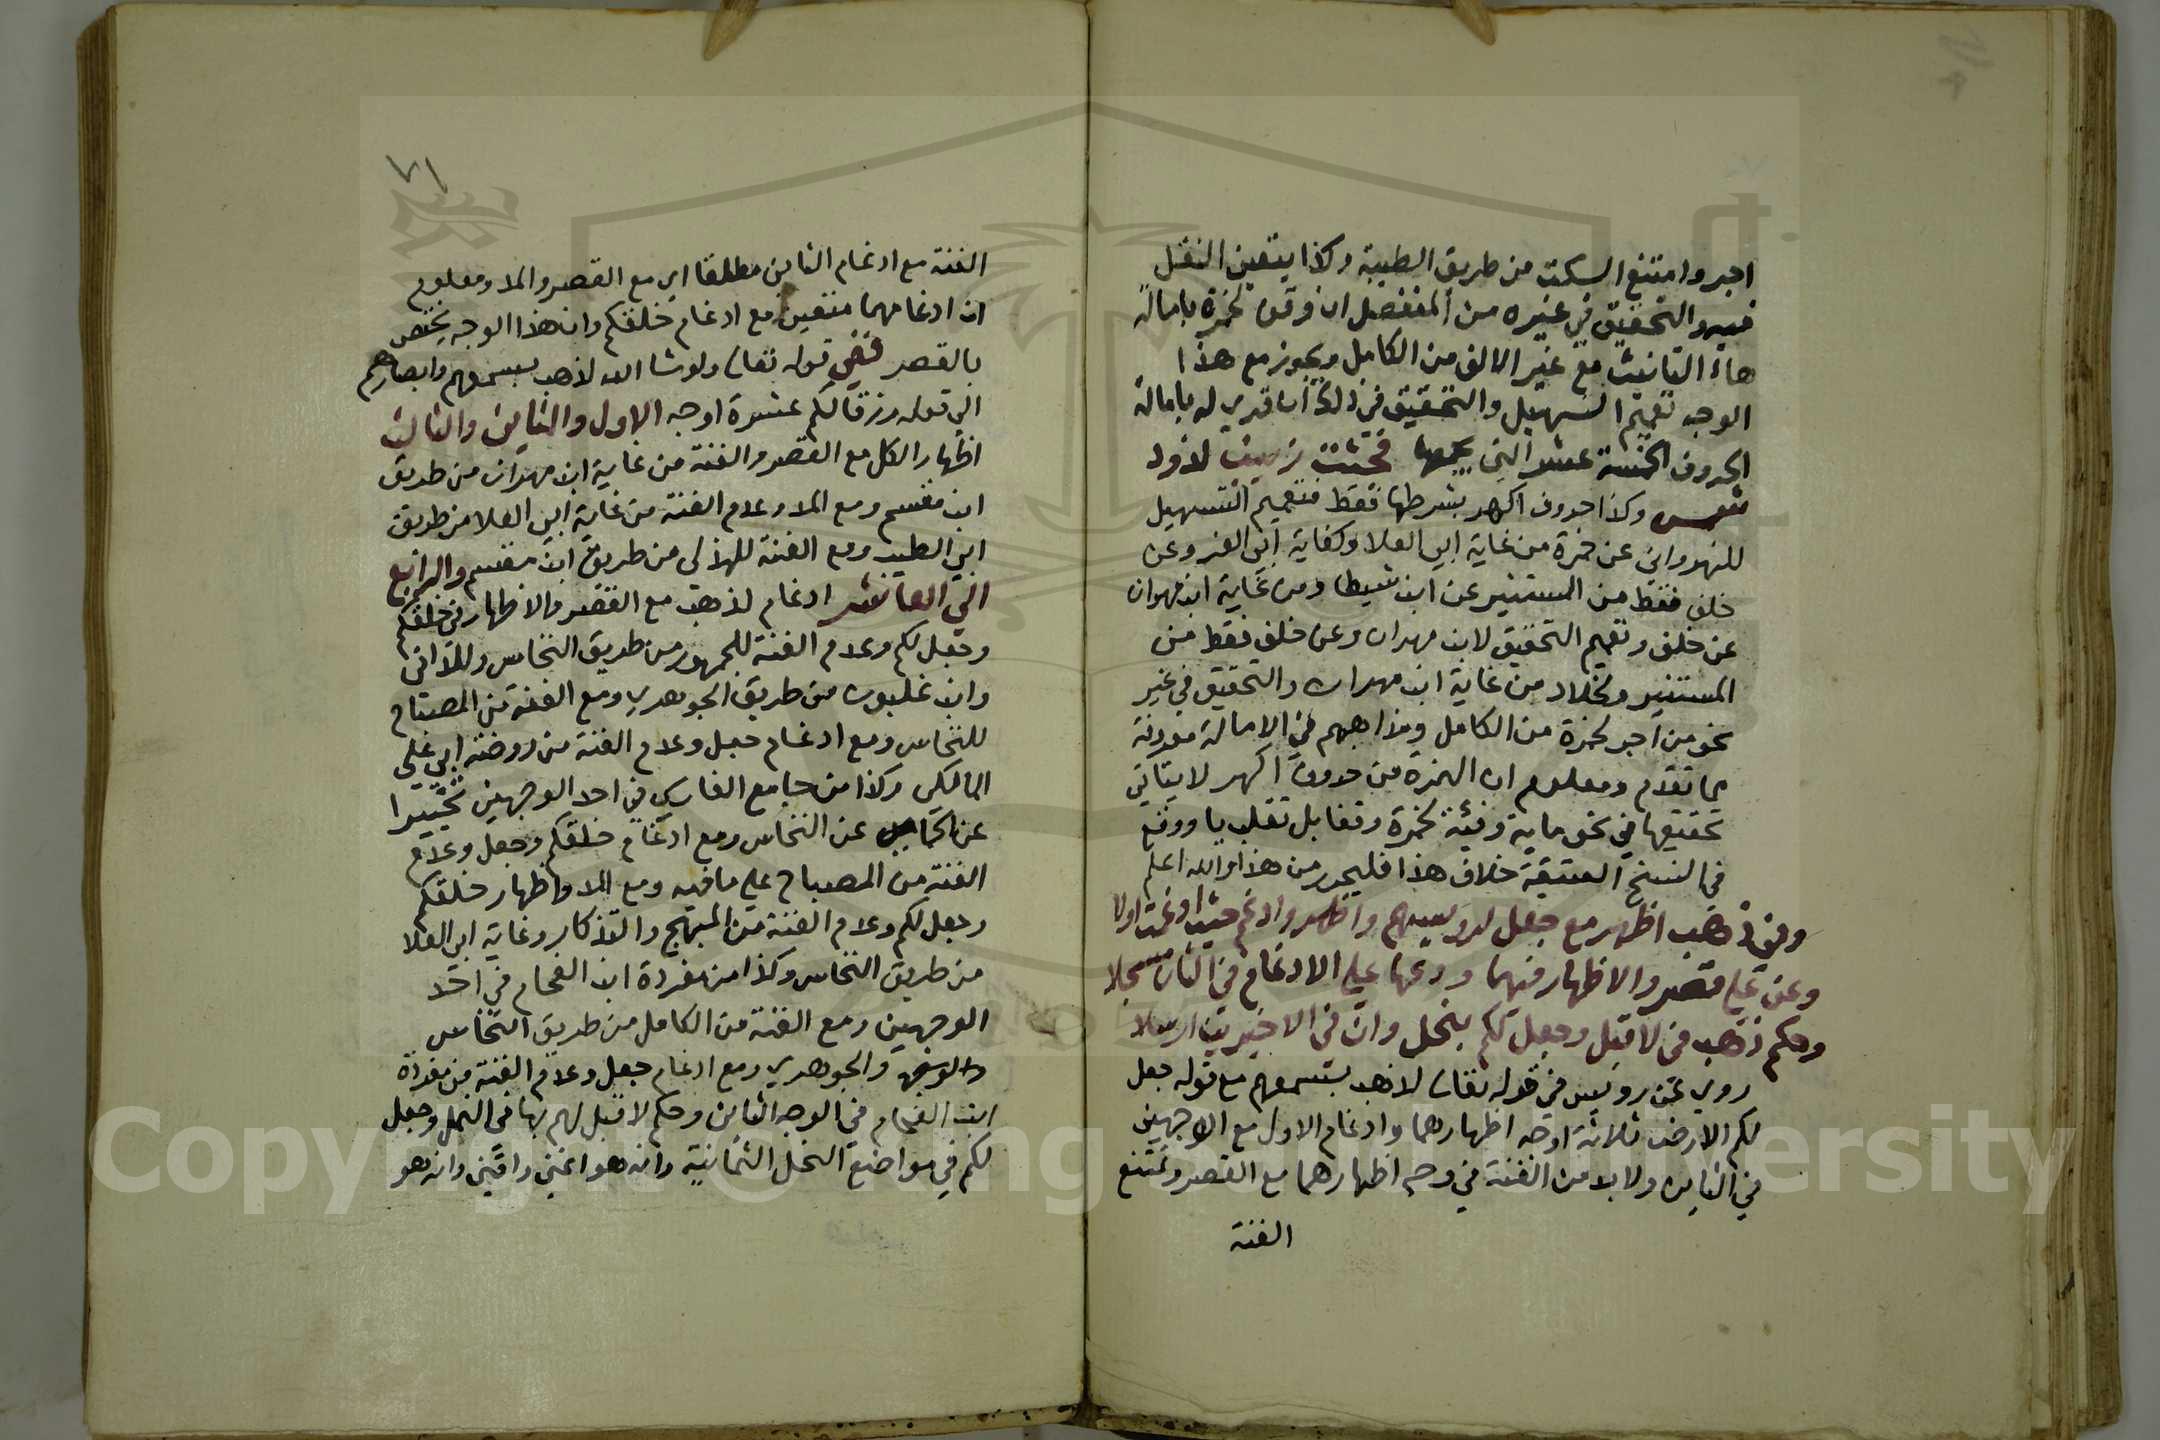 اجر وامتنع السكت من طريق الطيبة وكذا يتعين النقل
فيه والتحقيق في غيره من المنفصل ان وقف لحمزة بامالة
هاء التانيث مع غير الالف من الكامل ويجوز مع هذا
الوجه تعميم التسهيل والتحقيق في ذلك ان قرى له بامالة
الحروف الخمسة عشر التي يجمعها فجثت زينب لذود
شمس وكذا حروف اكهر بشرطها فقط فتعميم التسهيل
للنهرواني عن حمزة من غاية ابي العلا وكفاية ابي العز وعن
خلف فقط من المستنير عن ابن شيطا ومن غاية ابن مهران
عن خلف وتعميم التحقيق لابن مهران وعن خلف فقط من
المستنير ولخلاد من غاية ابن مهران والتحقيق في غير
نحو من اجر لحمزة من الكامل ومذاهبهم في الامالة معروفة
مما تقدم ومعلوم ان الهمزة من حروف اكهر لا يتاتى
تحقيقها في نحو ماية وفئة لحمزة وتقابل تقلب يا ووقع
في النسخ العتيقة خلاف هذا فليحرر من هذا والله اعلم
وفي ذهب اظهر مع جعل لرويسهم واظهر وادغم حيث ادغمت اولا
وغن على قصر والاظهار فيهما ودعها على الادغام في الثان مسجلا
وحكم ذهب في لا قبل وجعل لكم بنحل وان في الاخيرين ارسلا
روي عن رويس في قوله تعالى لذهب بسمعهم مع قوله جعل
لكم الارض ثلاثة اوجه اظهارهما وادغام الاول مع الوجهين
في الثاني ولا بد من الغنة في وجه اظهارهما مع القصر وتمتنع
الغنة
٧١
الغنة مع ادغام الثاني مطلقا اي مع القصر والمد ومعلوم
ان ادغامهما متعين مع ادغام خلقكم وان هذا الوجه يختص
بالقصر ففي قوله تعالى ولو شا الله لذهب بسمعهم وابصارهم
الى قوله رزقا لكم عشرة اوجه الاول والثاني والثالث
اظهار الكل مع القصر والغنة من غاية ابن مهران من طريق
ابن مقسم ومع المد وعدم الغنة من غاية ابي العلا من طريق
ابي الطيب ومع الغنة للهذلي من طريق ابن مقسم والرابع
الى العاشر ادغام لذهب مع القصر والاظهار في خلقكم
وجعل لكم وعدم الغنة للجمهور من طريق النخاس وللداني
وابن غلبون من طريق الجوهري ومع الغنة من المصباح
للنخاس ومع ادغام جعل وعدم الغنة من روضة ابي علي
المالكي وكذا من جامع الفارسي في احد الوجهين تخييرا
عن الحمامي عن النخاس ومع ادغام خلقكم وجعل وعدم
الغنة من المصباح على ما فيه ومع المد واظهار خلقكم
وجعل لكم وعدم الغنة من المبهج والتذكار وغاية ابي العلا
من طريق النخاس وكذا من مفردة ابن الفحام في احد
الوجهين ومع الغنة من الكامل من طريق النخاس
والجوهري ومع ادغام جعل وعدم الغنة من مفردة
ابن الفحام في الوجه الثاني وحكم لا قبل لهم بها في النمل وجعل
لكم في مواضع النحل الثمانية وانه هو اغنى واقنى وانه هو
Copyright © King Saud University